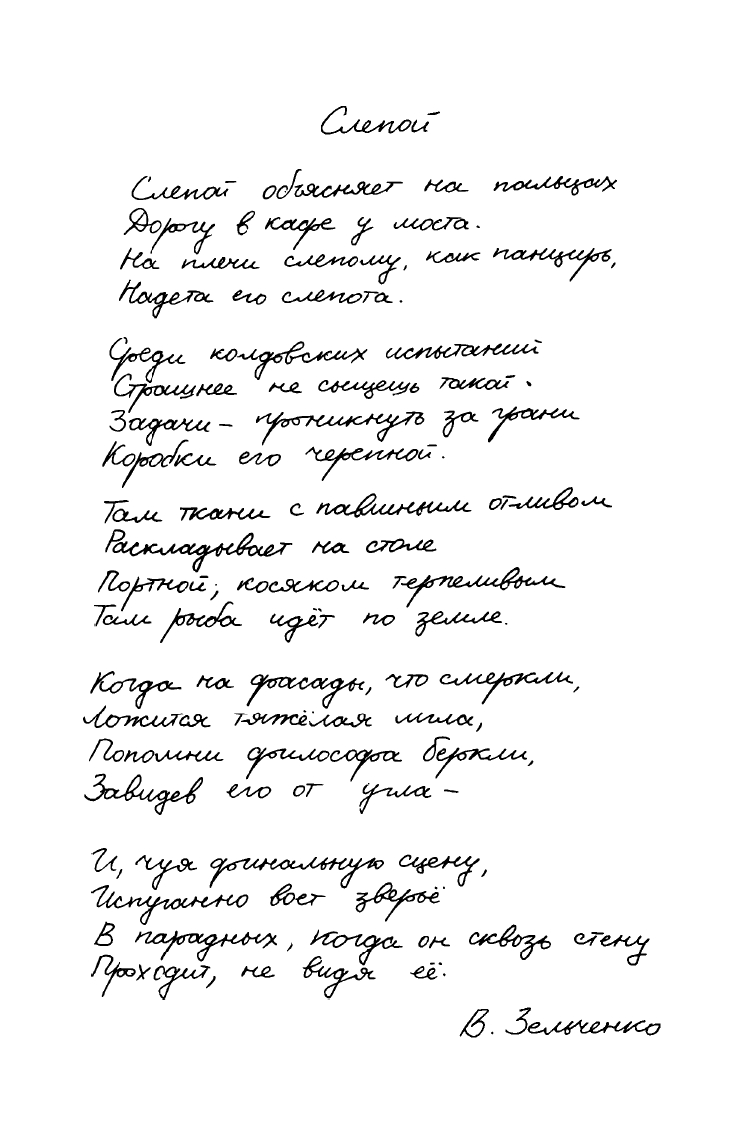 Слепой
Слепой объясняет на пальцах
Дорогу в кафе у моста.
На плечи слепому, как панцирь,
Надета его слепота.
Среди колдовских испытаний
Страшнее не сыщешь такой.
Задачи – проникнуть за грани
Коробки его черепной.
Там ткани с павлиньим отливом
Раскладывает на столе
Портной; косяком терпеливым
Там рыба идёт по земле.
Когда на фасады, что смеркли,
Ложится тяжёлая мгла,
Попомни философа Беркли,
Завидев его от угла –
И, чуя финальную сцену,
Испуганно воет зверьё
В парадных, когда он сквозь стену
Проходит, не видя её.
В. Зельченко